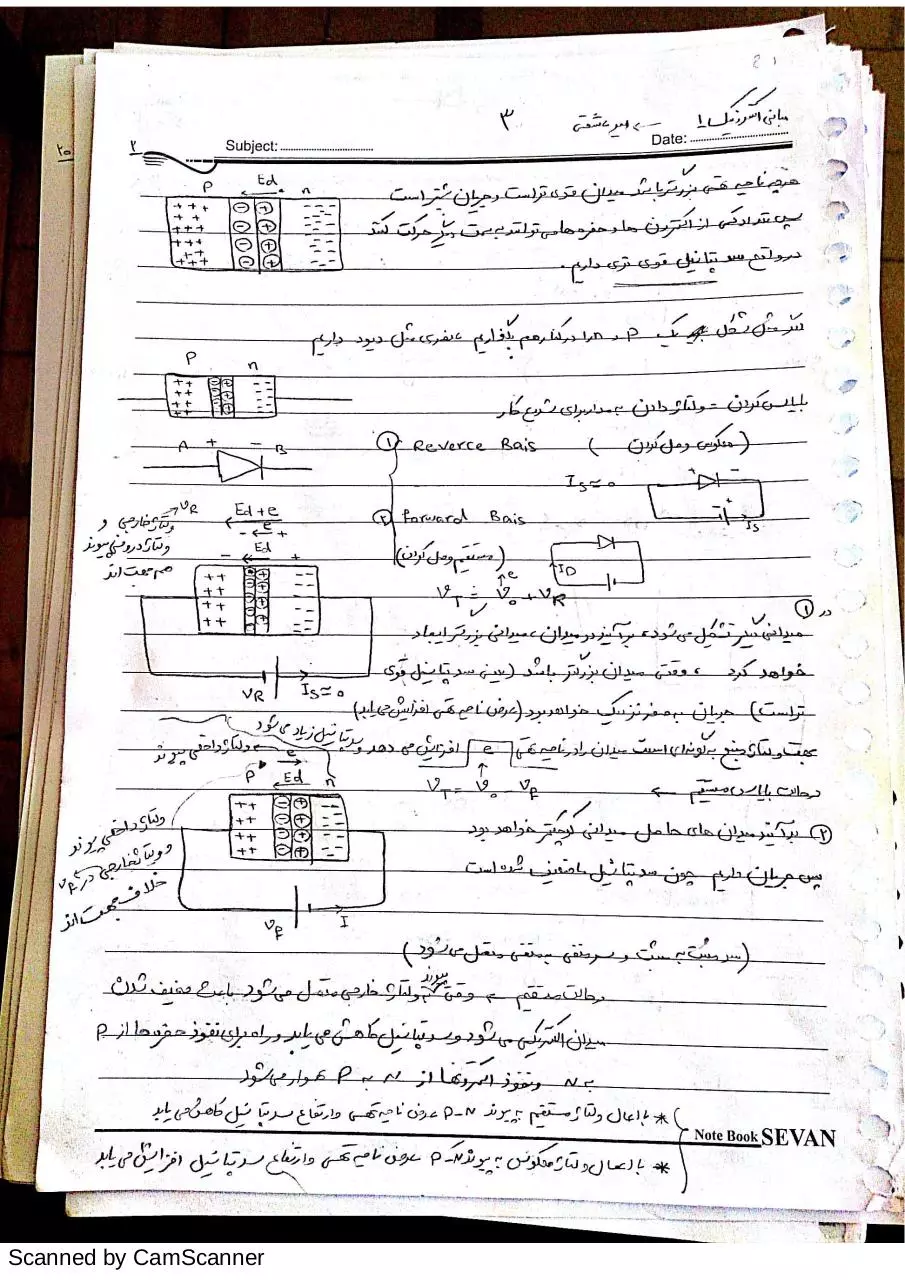 مبانی الکترونیک ۱ ← امیر عاشقی
۳
۲
Subject:
Date:
۲۰
هرچه ناحیه تهی بزرگتر باشد میدان قوی تر است و جریان بیشتر است
پس تعداد کمی از الکترون ها و حفره ها می توانند به سمت دیگر حرکت کنند
در واقع سد پتانسیل قوی تری داریم.
P Ed n
اگر مثل شکل یک P و n را در کنار هم بگذاریم عنصری مثل دیود داریم
P n
بایاس کردن = ولتاژ دادن به مدار برای شروع کار
A + − B
① Reverce Bais (معکوس وصل کردن)
Is≈0
Is
② Forward Bais
(مستقیم وصل کردن)
ID
VT = V0 + VR
e
ولتاژ خارجی VR و
ولتاژ درونی پیوند
هم جهت اند
Ed+e
− e +
− Ed +
VR Is≈0
در ①
میدانی دیگر تشکیل می شود، برآیند دو میدان، میدانی بزرگتر ایجاد
خواهد کرد، وقتی میدان بزرگتر باشد (یعنی سد پتانسیل قوی
تر است) جریان به صفر نزدیک خواهد بود (عرض ناحیه تهی افزایش می یابد)
جهت ولتاژ منبع به گونه ای است میدان را در ناحیه تهی e افزایش می دهد و سد پتانسیل زیاد می شود
ولتاژ داخلی پیوند
در حالت بایاس مستقیم ←
VT = V0 − VF
② برآیند میدان های حاصل میدانی کوچکتر خواهد بود
پس جریان داریم چون سد پتانسیل ما ضعیف شده است
e
P Ed n
VF I
ولتاژ داخلی پیوند
و ولتاژ خارجی در VF
خلاف جهت اند
(سر مثبت به مثبت و سر منفی به منفی متصل می شود)
در حالت مستقیم ← وقتی پیوند به ولتاژ خارجی متصل می شود باعث ضعیف شدن
میدان الکتریکی می شود و سد پتانسیل کاهش می یابد و راه برای نفوذ حفره ها از P
به N و نفوذ الکترونها از N به P هموار می شود
* با اعمال ولتاژ مستقیم به پیوند P-N عرض ناحیه تهی و ارتفاع سد پتانسیل کاهش می یابد
Note Book SEVAN
* با اعمال ولتاژ معکوس به پیوند P-N عرض ناحیه تهی و ارتفاع سد پتانسیل افزایش می یابد
Scanned by CamScanner